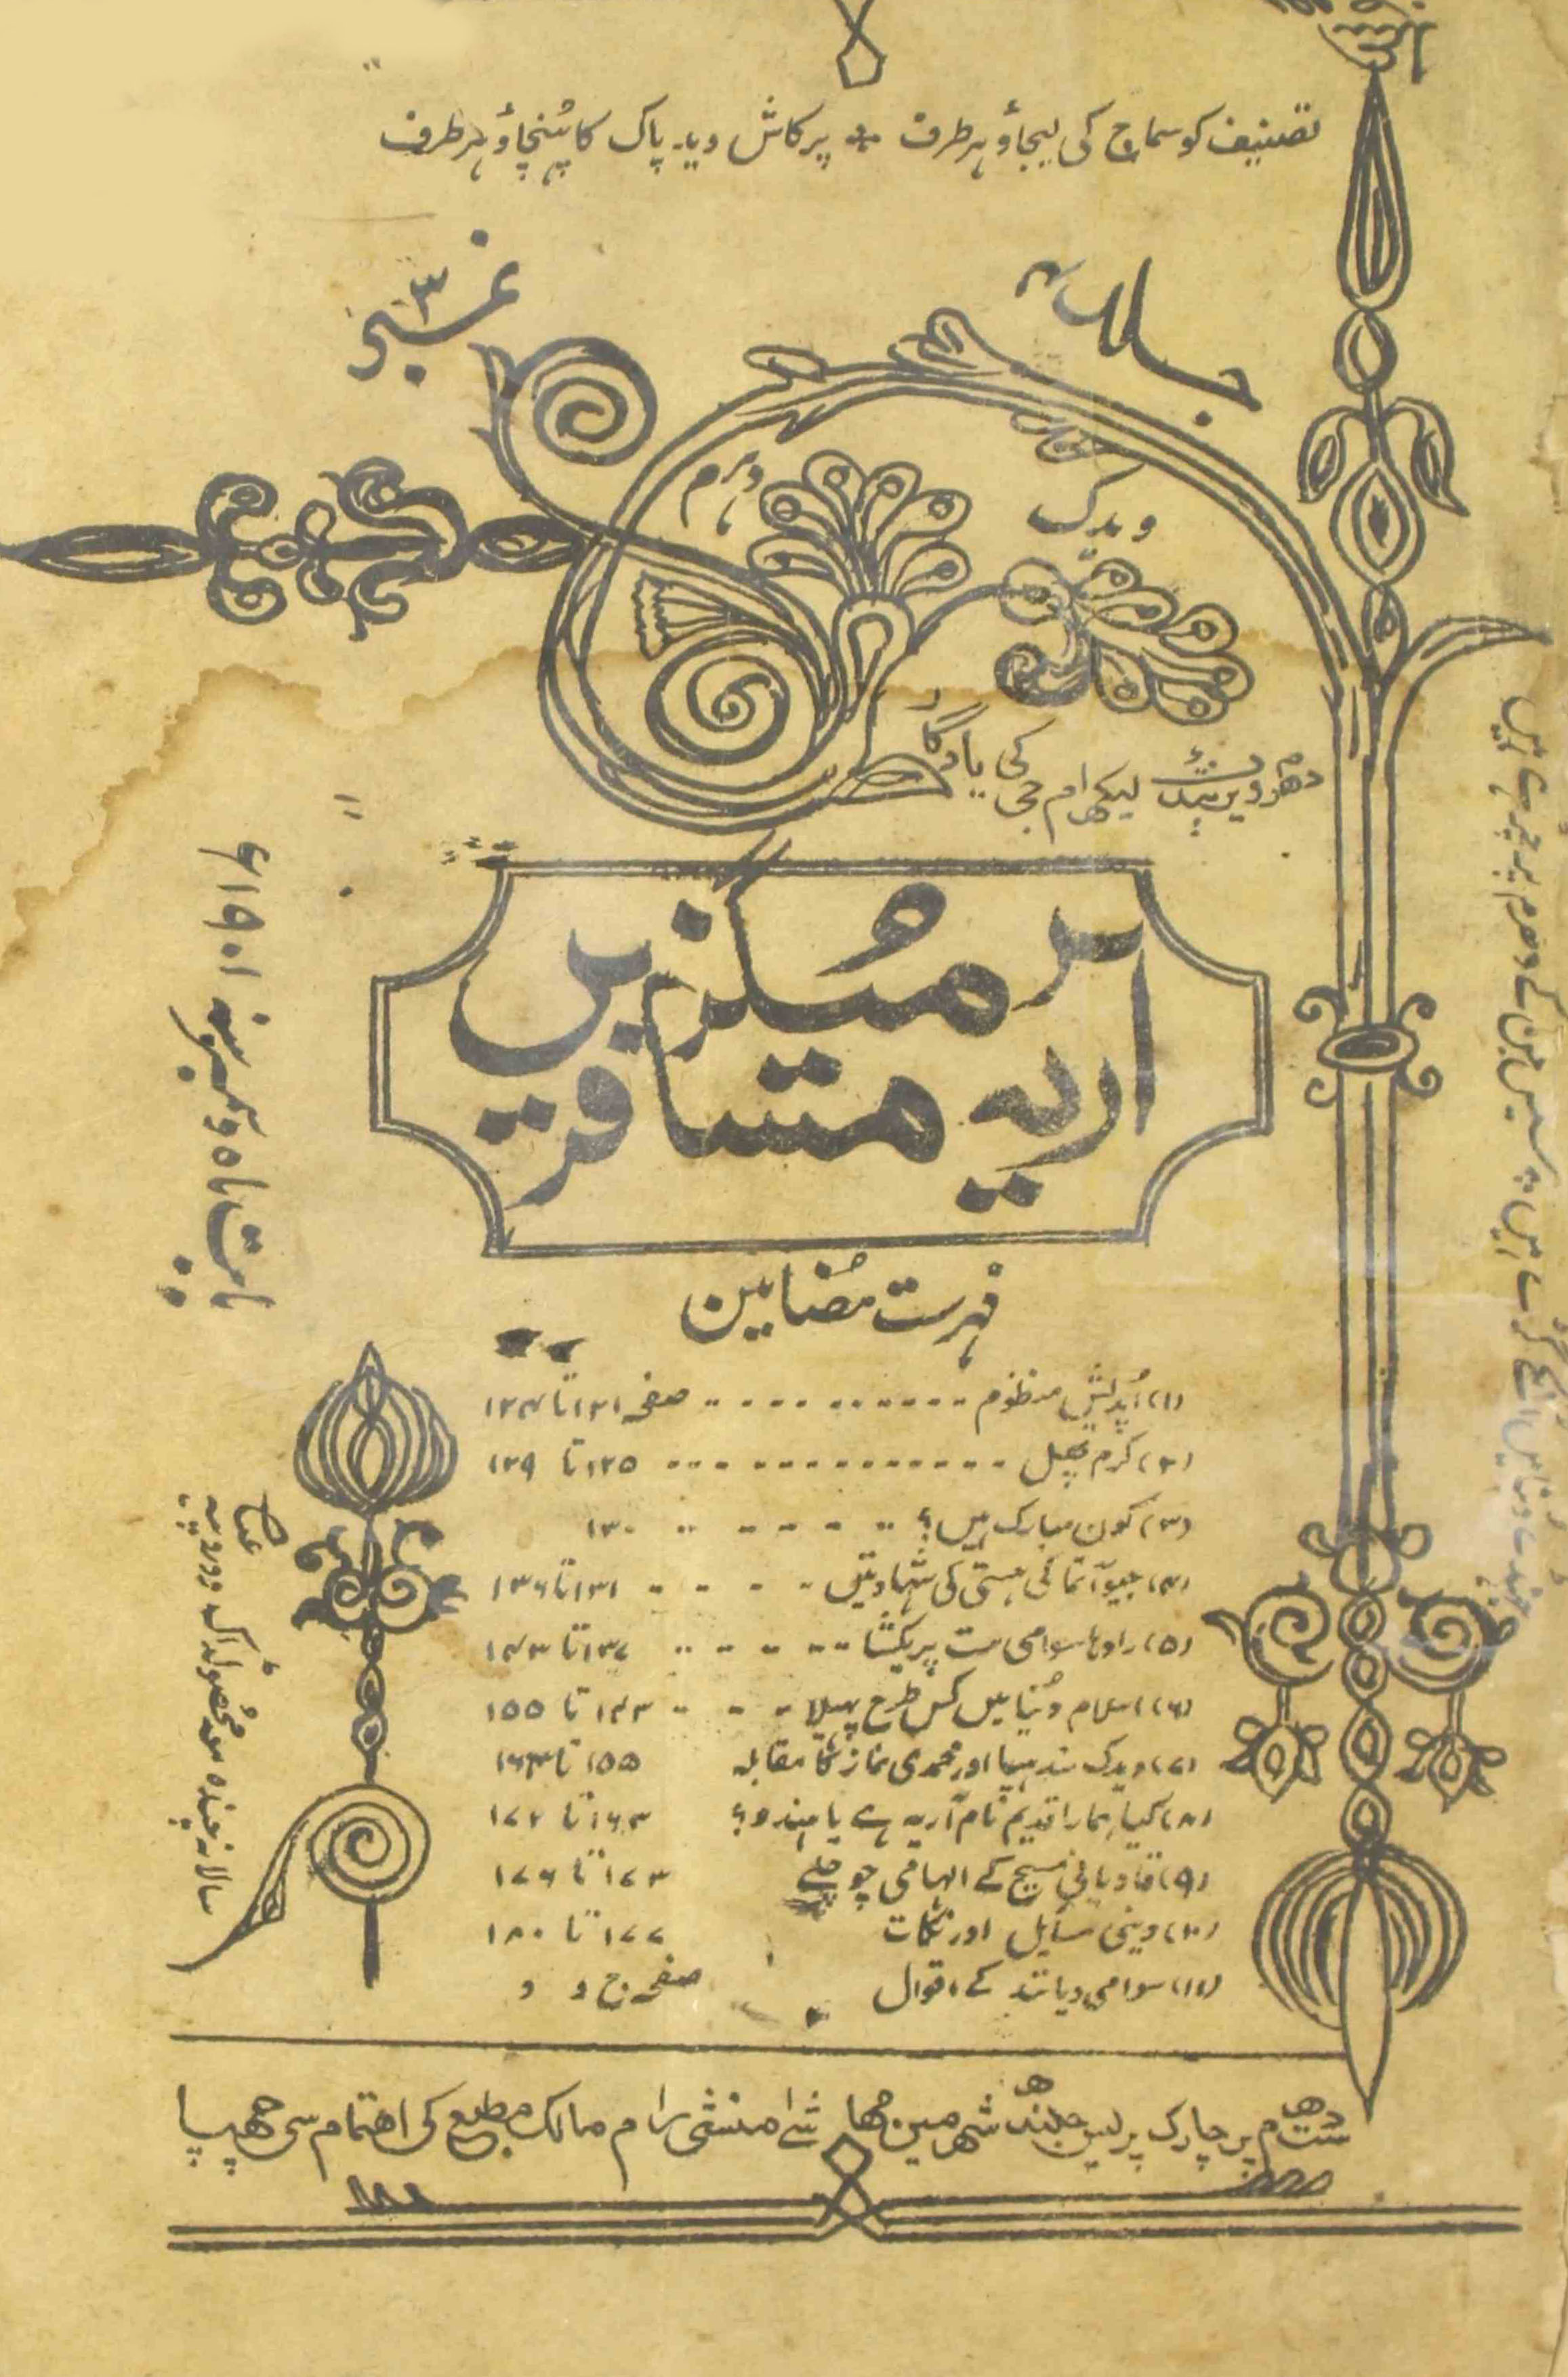 تصنیف کو سماج کی لیجاؤ ہر طرف * پرکاش وید پاک کا پہنچاؤ ہر طرف
جلد ۴
نمبر ۳
ویدک
دہرم
دھرم ویر پنڈت لیکھرام جی کی یادگار
آریہ مسافر
میگزین
بابت ماہ دسمبر سنہ ۱۹۰۱ء
فہرست مضامین
(۱) اُپدیش منظوم صفحہ ۱۲۱ تا ۱۲۴
(۲) کرم پھل ۱۲۵ تا ۱۲۹
(۳) کون مبارک ہیں؟ ۱۳۰
(۴) جیو آتما کی ہستی کی شہادتیں ۱۳۱ تا ۱۳۶
(۵) رادہا سوامی مت پریکشا ۱۳۷ تا ۱۴۳
(۶) اسلام دُنیا میں کس طرح پھیلا ۱۴۳ تا ۱۵۵
(۷) ویدک سندہیا اور محمدی نماز کا مقابلہ ۱۵۵ تا ۱۶۳
(۸) کیا ہمارا قدیم نام آریہ ہے یا ہندو؟ ۱۶۳ تا ۱۷۲
(۹) قادیانی مسیح کے الہامی چوچلے ۱۷۳ تا ۱۷۶
(۱۰) دینی مسایل اور نکات ۱۷۷ تا ۱۸۰
(۱۱) سوامی دیانند کے اقوال صفحہ ج و د
سالانہ چندہ معہ محصولڈاک دو روپیہ
ست دھرم پرچارک پریس جلندھر شہر میں مہاشے منشی رام مالک مطبع کی اھتمام سی چھپا